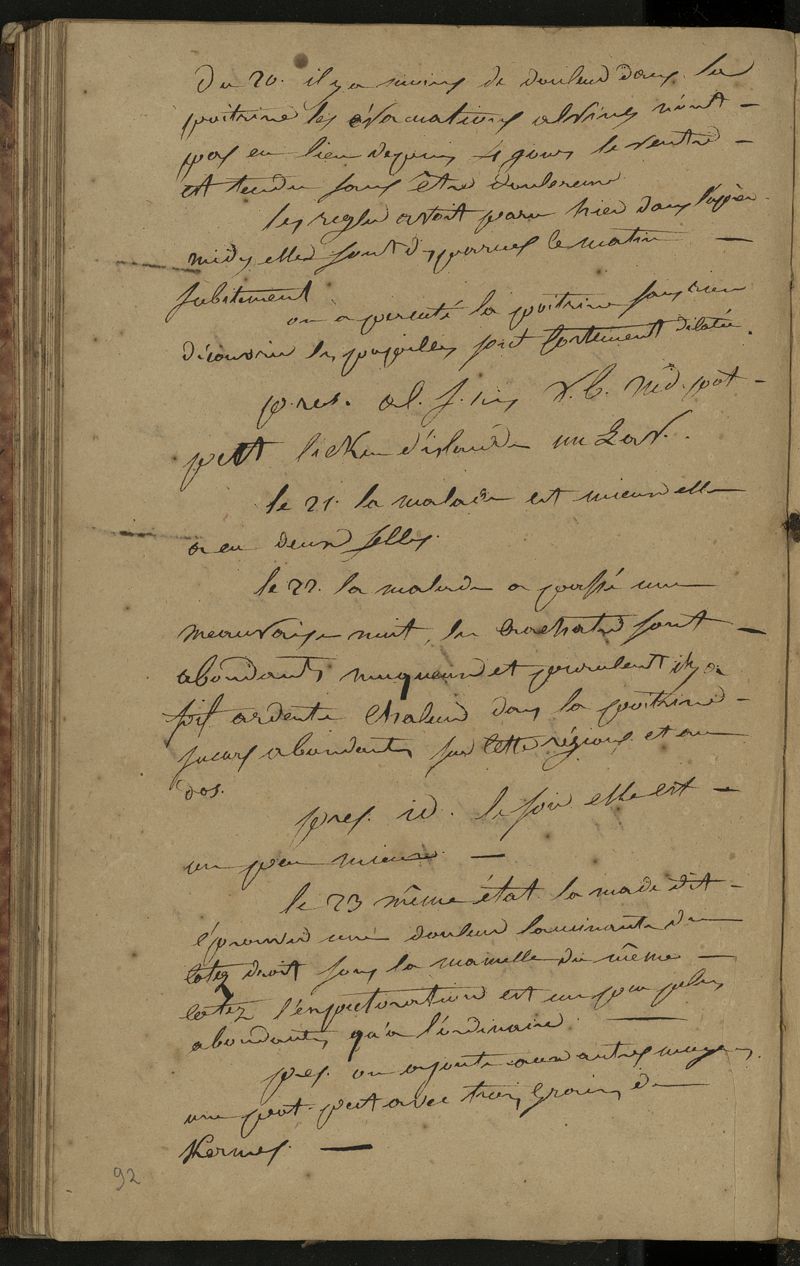 Du 20. il y a moins de douleur dans la
poitrine les évacuations alvines n'ont
pas eu lieu depuis 4 jours le ventre
est tendu sans être douloureux
les regles avoit paru hier dans l'après
midy elles sont disparues le matin
subitement
on a percuté la poitrine sans rien
découvrir les pupilles sont fortement dilatée.
pres. al. V. b. Nd. pot
pect licken d'islande un Lav.
le 21. la malade est mieux elle
a eu deux selles.
le 22. la malade a passé une
meauvaise nuit, les crachats sont
abondants muqueux et purulent il y a
soif ardente chaleur dans la poitrine
sueurs abondantes sur cette régions et au
dos.
pres. id. le soir elle est
un peu mieux
le 23 même état la made dit
éprouver une douleur lancinante du
cotez droit sous la mamelle du même
cotez l'expectoration est un peu plus
abondante qu'a l'ordinaire.
pres. on ajoute aux autres moyens.
une pot. pect avec trois grains de
Kermes.
92